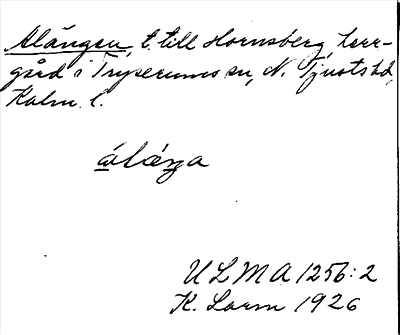 Alängen, t. till Hornsberg, herr-
gård i Tryserums sn, N. Tjusts hd,
Kalm. l.
álæŋa
ULMA 1256:2
K. Lorm 1926